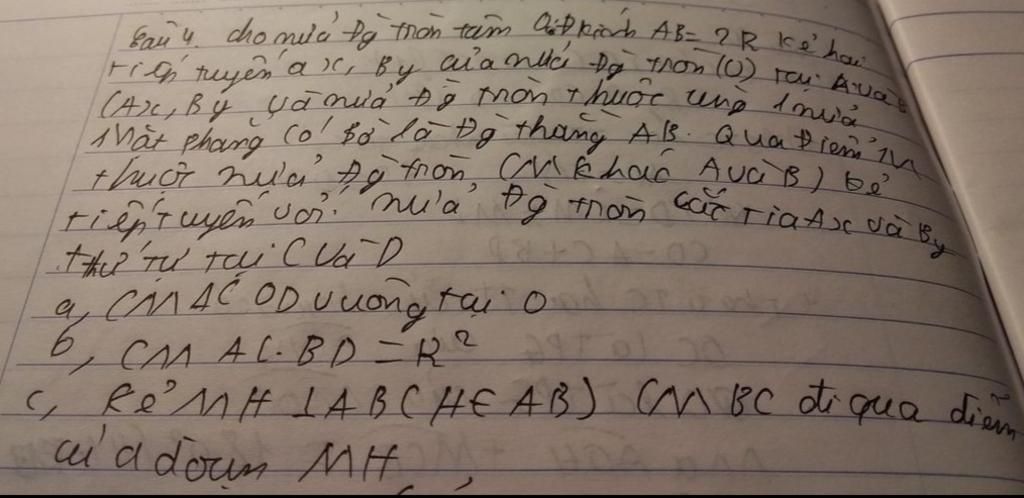 Câu 4. cho nửa Đg tròn tâm O, Đkính AB = 2R kẻ hai
tiếp tuyến Ax, By của nửa Đg tròn (O) tại A và B
(Ax, By và nửa Đg tròn thuộc cùng 1 nửa
Mặt phẳng có Bờ là Đg thẳng AB. Qua Điểm M
thuộc nửa Đg tròn (M khác A và B) kẻ
tiếp tuyến với nửa Đg tròn cắt tia Ax và By
thứ tự tại C và D
a, CM △COD vuông tại O
b, CM AC.BD = R²
c, Kẻ MH ⊥ AB (H ∈ AB) CM BC đi qua điểm
của đoạn MH